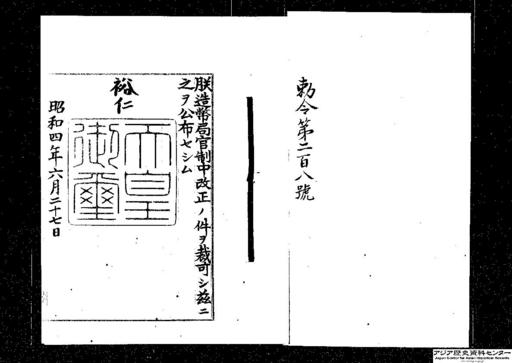 勅令第二百八號
朕造幣局官制中改正ノ件ヲ裁可シ茲ニ
之ヲ公布セシム
裕仁
天皇
御璽
昭和四年六月二十七日
アジア歴史資料センター
Japan Center for Asian Historical Records